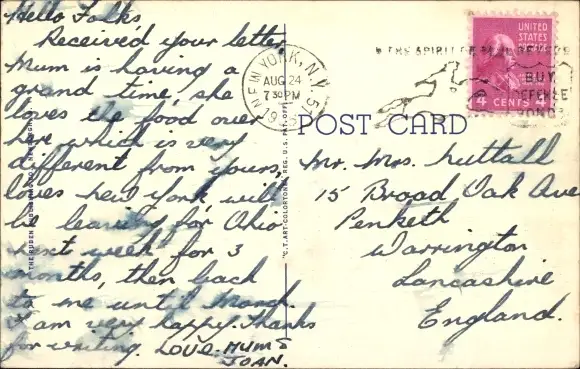 Hello Folks
Received your letter,
Mum is having a
grand time, she
loves the food over
here which is very
different from yours,
loves New York, will
be leaving for Ohio
next week for 3
months, then back
to me until March.
I am very happy. Thanks
for writing. Love. Mum &
JOAN.
NEW YORK, N.Y.
AUG 24
7 30 PM
1951
BUY
DEFENSE
BONDS
UNITED
STATES
POSTAGE
4 CENTS 4
POST CARD
"C.T. ART-COLORTONE" REG. U.S. PAT. OFF.
Mr. Mrs. Nuttall
15 Broad Oak Ave
Penketh
Warrington
Lancashire
England.